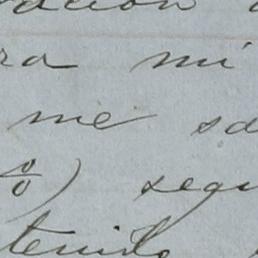 ra mi
me sa
%) segu
tenido